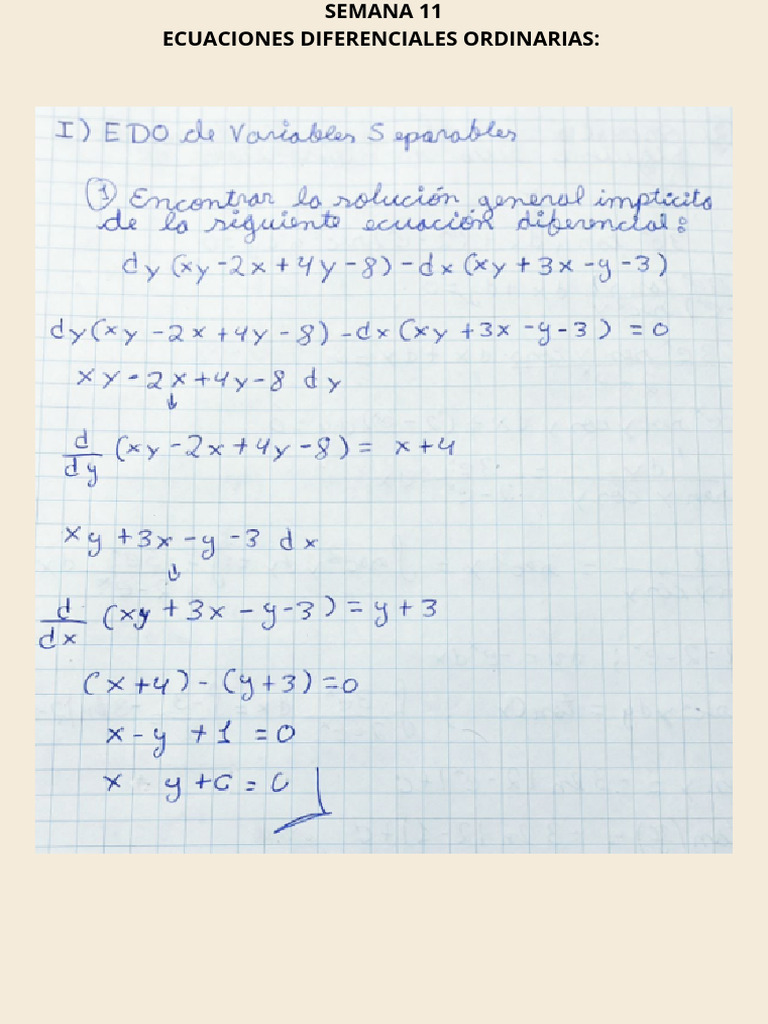 SEMANA 11
ECUACIONES DIFERENCIALES ORDINARIAS:
I) EDO de Variables Separables
① Encontrar la solución general implícita
de la siguiente ecuación diferencial:
dy (xy - 2x + 4y - 8) - dx (xy + 3x - y - 3)
dy (xy - 2x + 4y - 8) - dx (xy + 3x - y - 3) = 0
xy - 2x + 4y - 8 dy
↓
d/dy (xy - 2x + 4y - 8) = x + 4
xy + 3x - y - 3 dx
↓
d/dx (xy + 3x - y - 3) = y + 3
(x + 4) - (y + 3) = 0
x - y + 1 = 0
x y + C = C